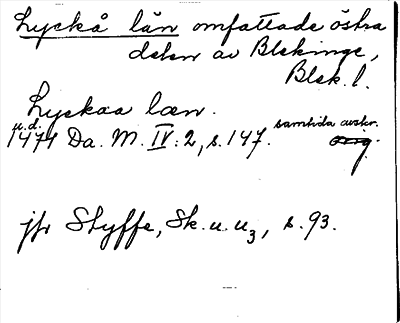 Lyckå län omfattade östra
delen av Blekinge,
Blek. l.
Lyckaa læn.
u.d.
1474 Da. M. IV: 2, s. 147. samtida avskr.
orig.
jfr Styffe, Sk. u. u3, s. 93.